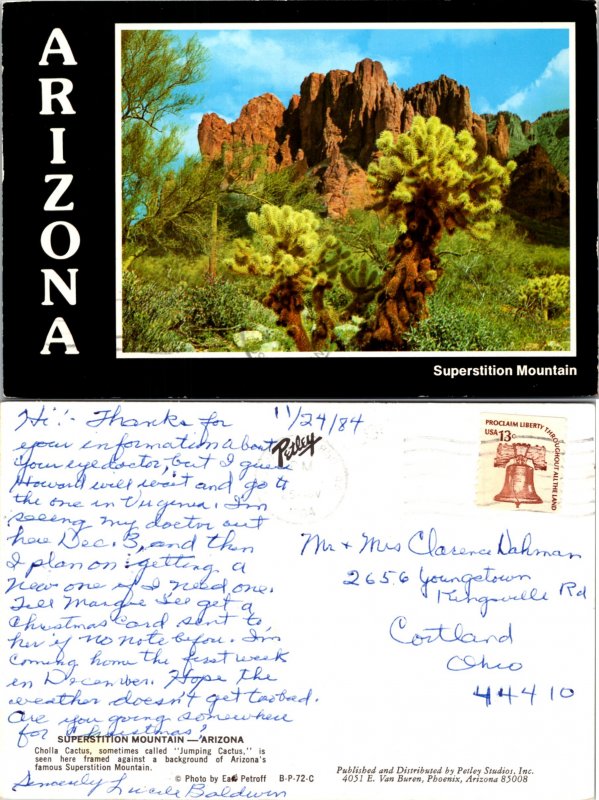 ARIZONA
Superstition Mountain
11/24/84
Hi! - Thanks for
your information about
your eye doctor, but I guess
Howard will wait and go to
the one in Virginia. I'm
seeing my doctor out
here Dec. 3, and then
I plan on getting a
new one if I need one.
Tell Margie I'll get a
Christmas Card sent to
her if no note before. I'm
coming home the first week
in December. Hope the
weather doesn't get too bad.
Are you going somewhere
for Christmas?
Sincerely Lucile Baldwin
SUPERSTITION MOUNTAIN — ARIZONA
Cholla Cactus, sometimes called "Jumping Cactus," is
seen here framed against a background of Arizona's
famous Superstition Mountain.
© Photo by Earl Petroff B-P-72-C
Petley
PROCLAIM LIBERTY THROUGHOUT ALL THE LAND
USA 13c
Mr + Mrs Clarence Dahman
2656 Youngstown
Kingsville Rd
Cortland
Ohio
44410
Published and Distributed by Petley Studios, Inc.
4051 E. Van Buren, Phoenix, Arizona 85008